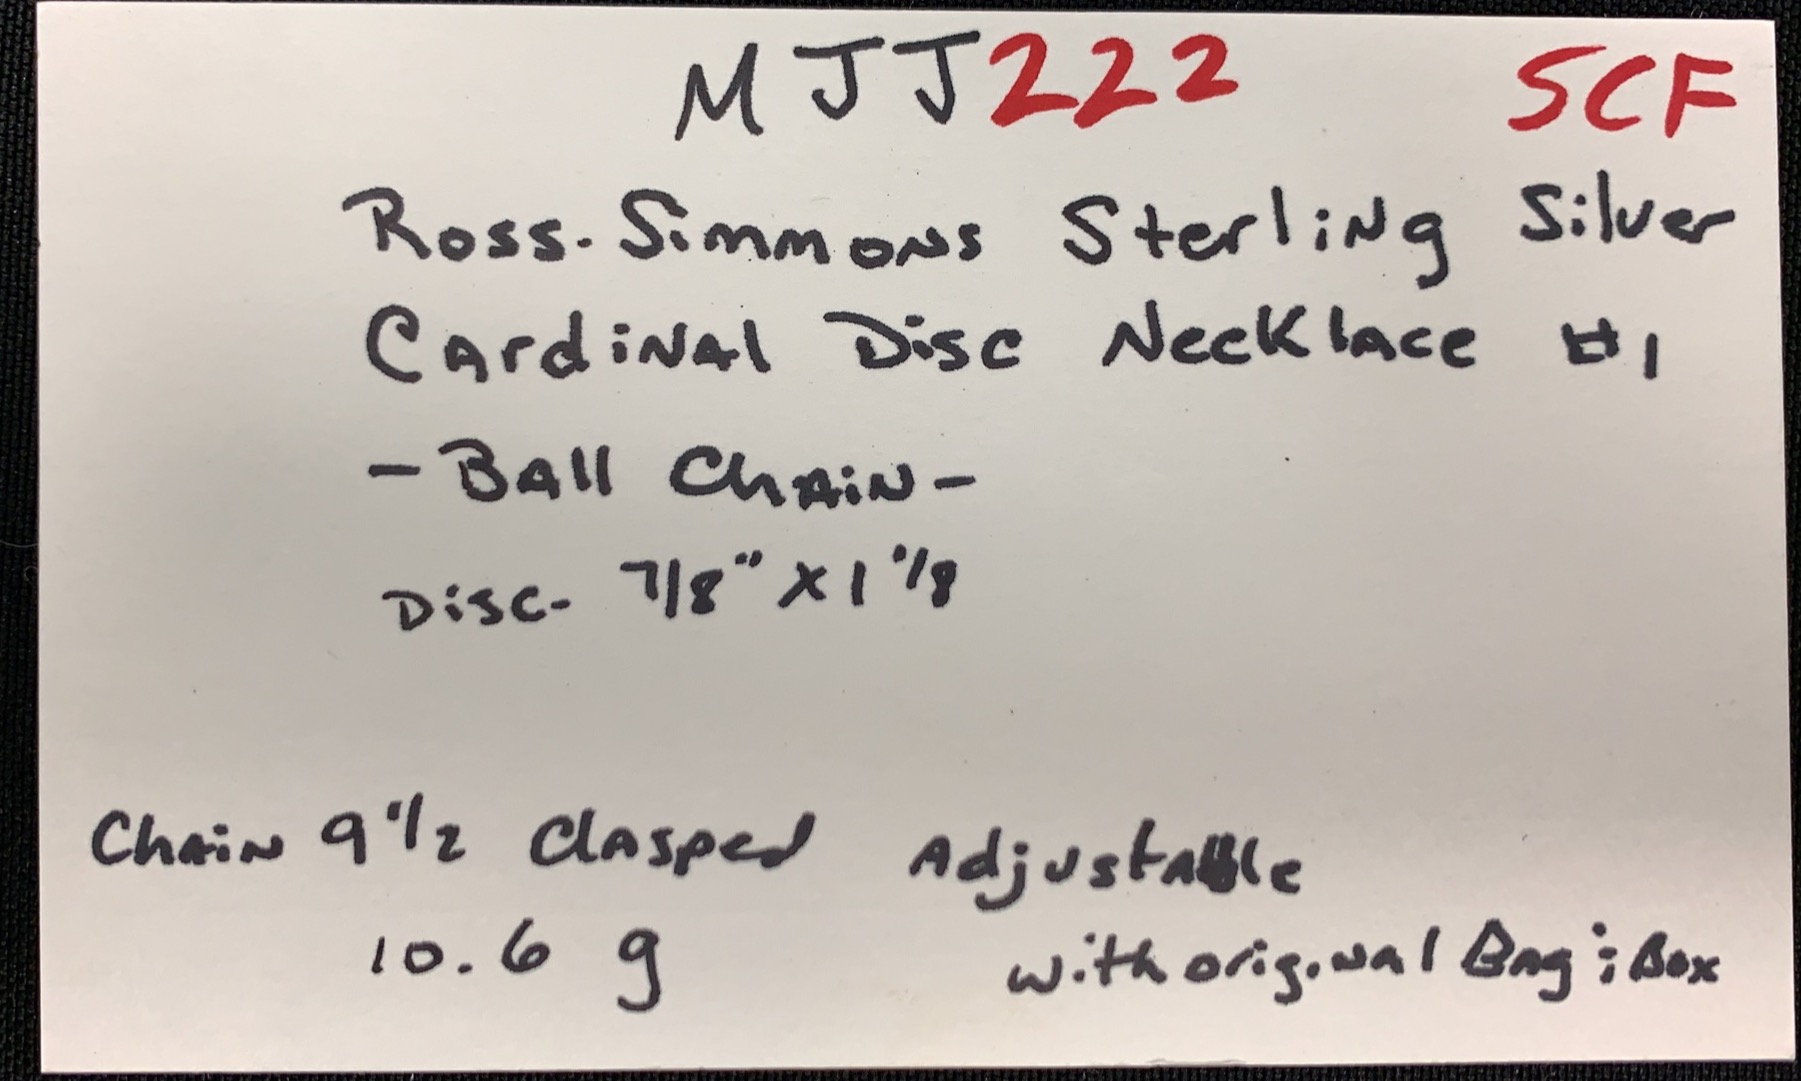 MJJ222 SCF
Ross-Simmons Sterling Silver
Cardinal Disc Necklace #1
- Ball Chain -
Disc- 7/8" x 1 1/8
Chain 9 1/2 Clasped Adjustable
10.6 g with original Bag & Box